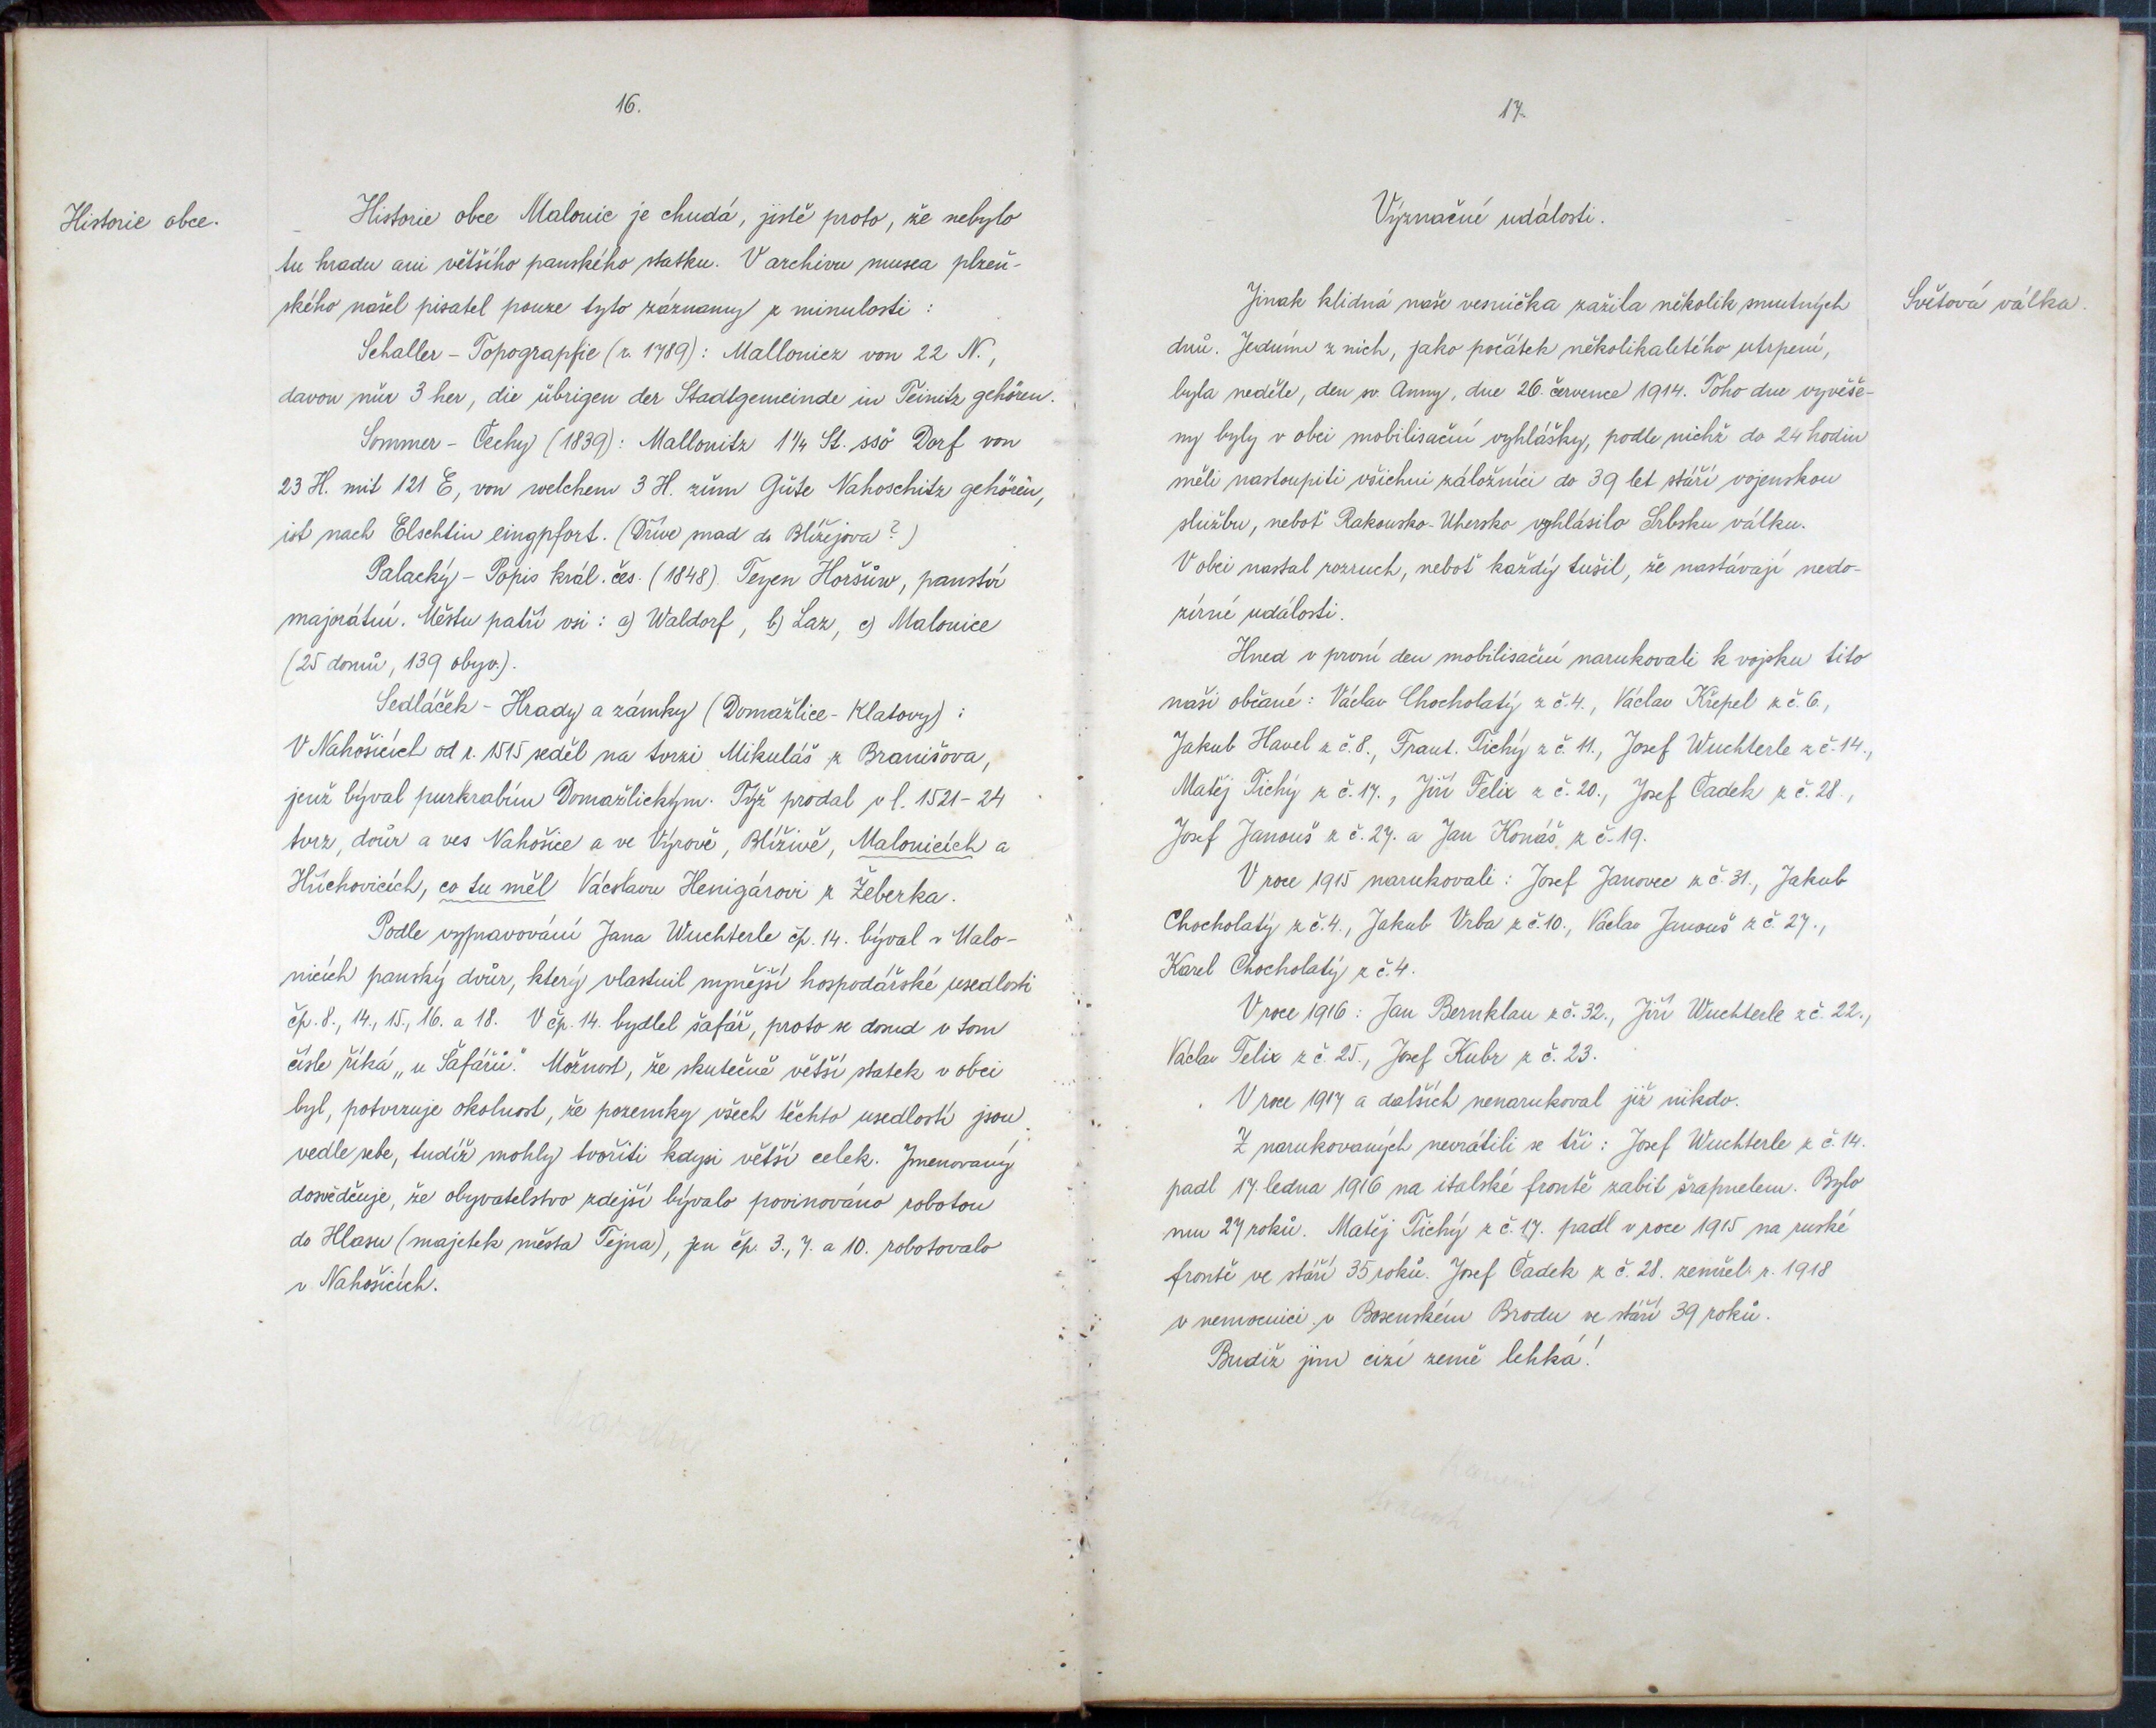 16.
Historie obce.
Historie obce Malonic je chudá, jistě proto, že nebylo
tu hradu ani většího panského statku. V archivu musea plzeň-
ského našel pisatel pouze tyto záznamy z minulosti:
Schaller - Topograpfie (r. 1789): Mallonicz von 22 N.,
davon nůr 3 her, die übrigen der Stadtgemeinde in Teinitz gehören.
Sommer - Čechy (1839): Mallonitz 1¼ St. ssö Dorf von
23 H. mit 121 E, von welchem 3 H. zům Gůte Nahoschitz gehören,
ist nach Elschtin eingpfort. (Dříve snad do Blížejova?)
Palacký - Popis král. čes. (1848). Teyen Horšůw, panství
majorátní. Městu patří vsi: a) Waldorf, b) Laz, c) Malonice
(25 domů, 139 obyv.).
Sedláček - Hrady a zámky (Domažlice - Klatovy):
V Nahošicích od r. 1515 seděl na tvrzi Mikuláš z Branišova,
jenž býval purkrabím Domažlickým. Týž prodal v l. 1521-24
tvrz, dvůr a ves Nahošice a ve Výrově, Blíživě, Malonicích a
Hůchovicích, co tu měl Václavu Henigárovi z Žeberka.
Podle vypravování Jana Wuchterle čp. 14. býval v Malo-
nicích panský dvůr, který vlastnil nynější hospodářské usedlosti
čp. 8., 14., 15., 16. a 18. V čp. 14. bydlel šafář, proto se dosud v tom
čísle říká „u Šafářů." Možnost, že skutečně větší statek v obci
byl, potvrzuje okolnost, že pozemky všech těchto usedlostí jsou
vedle sebe, tudíž mohly tvořiti kdysi větší celek. Jmenovaný
dosvědčuje, že obyvatelstvo zdejší bývalo povinováno robotou
do Hlasu (majetek města Tejna), jen čp. 3., 7. a 10. robotovalo
v Nahošicích.
17.
Význačné události.
Světová válka.
Jinak klidná naše vesnička zažila několik smutných
dnů. Jedním z nich, jako počátek několikaletého utrpení,
byla neděle, den sv. Anny, dne 26. července 1914. Toho dne vyvěše-
ny byly v obci mobilisační vyhlášky, podle nichž do 24 hodin
měli nastoupiti všichni záložníci do 39 let stáří vojenskou
službu, neboť Rakousko-Uhersko vyhlásilo Srbsku válku.
V obci nastal rozruch, neboť každý tušil, že nastávají nedo-
zírné události.
Hned v první den mobilisační narukovali k vojsku tito
naši občané: Václav Chocholatý z č. 4., Václav Křepel z č. 6.,
Jakub Havel z č. 8., Frant. Tichý z č. 11., Josef Wuchterle z č. 14.,
Matěj Tichý z č. 17., Jiří Felix z č. 20., Josef Čadek z č. 28.,
Josef Janouš z č. 27. a Jan Konáš z č. 19.
V roce 1915 narukovali: Josef Janovec z č. 31., Jakub
Chocholatý z č. 4., Jakub Vrba z č. 10., Václav Janouš z č. 27.,
Karel Chocholatý z č. 4.
V roce 1916: Jan Bernklau z č. 32., Jiří Wuchterle z č. 22.,
Václav Felix z č. 25., Josef Kubr z č. 23.
V roce 1917 a dalších nenarukoval již nikdo.
Z narukovaných nevrátili se tři: Josef Wuchterle z č. 14.
padl 17. ledna 1916 na italské frontě zabit šrapnelem. Bylo
mu 27 roků. Matěj Tichý z č. 17. padl v roce 1915 na ruské
frontě ve stáří 35 roků. Josef Čadek z č. 28. zemřel r. 1918
v nemocnici v Bosenském Brodu ve stáří 39 roků.
Budiž jim cizí země lehká!